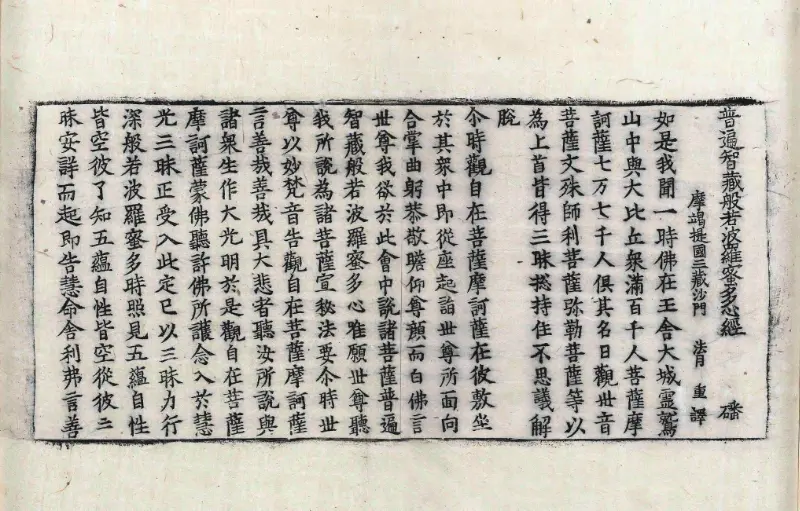 普遍智藏般若波羅蜜多心經 磻
摩竭提國三藏沙門 法月 重譯
如是我聞一時佛在王舍大城靈鷲
山中與大比丘衆滿百千人菩薩摩
訶薩七万七千人俱其名曰觀世音
菩薩文殊師利菩薩弥勒菩薩等以
為上首皆得三昧捴持住不思議解
脫
尒時觀自在菩薩摩訶薩在彼敷坐
於其衆中即從座起詣世尊所面向
合掌曲躬恭敬瞻仰尊顏而白佛言
世尊我欲於此會中說諸菩薩普遍
智藏般若波羅蜜多心唯願世尊聽
我所說為諸菩薩宣秘法要尒時世
尊以妙梵音告觀自在菩薩摩訶薩
言善哉善哉具大悲者聽汝所說與
諸衆生作大光明於是觀自在菩薩
摩訶薩蒙佛聽許佛所護念入於慧
光三昧正受入此定已以三昧力行
深般若波羅蜜多時照見五蘊自性
皆空彼了知五蘊自性皆空從彼三
昧安詳而起即告慧命舍利弗言善